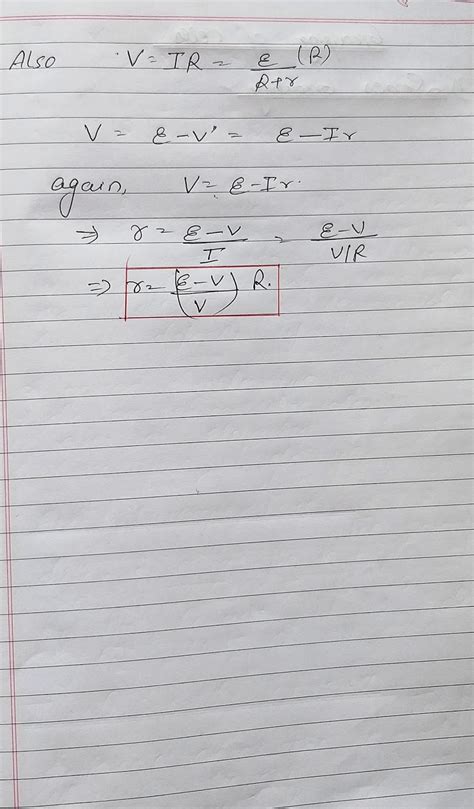 Also V = IR = ε/(R+r) (R)
V = ε – V' = ε – Ir
again, V = ε – Ir.
⇒ r = (ε–V)/I = (ε–V)/(V/R)
⇒ r = ((ε–V)/V) R.